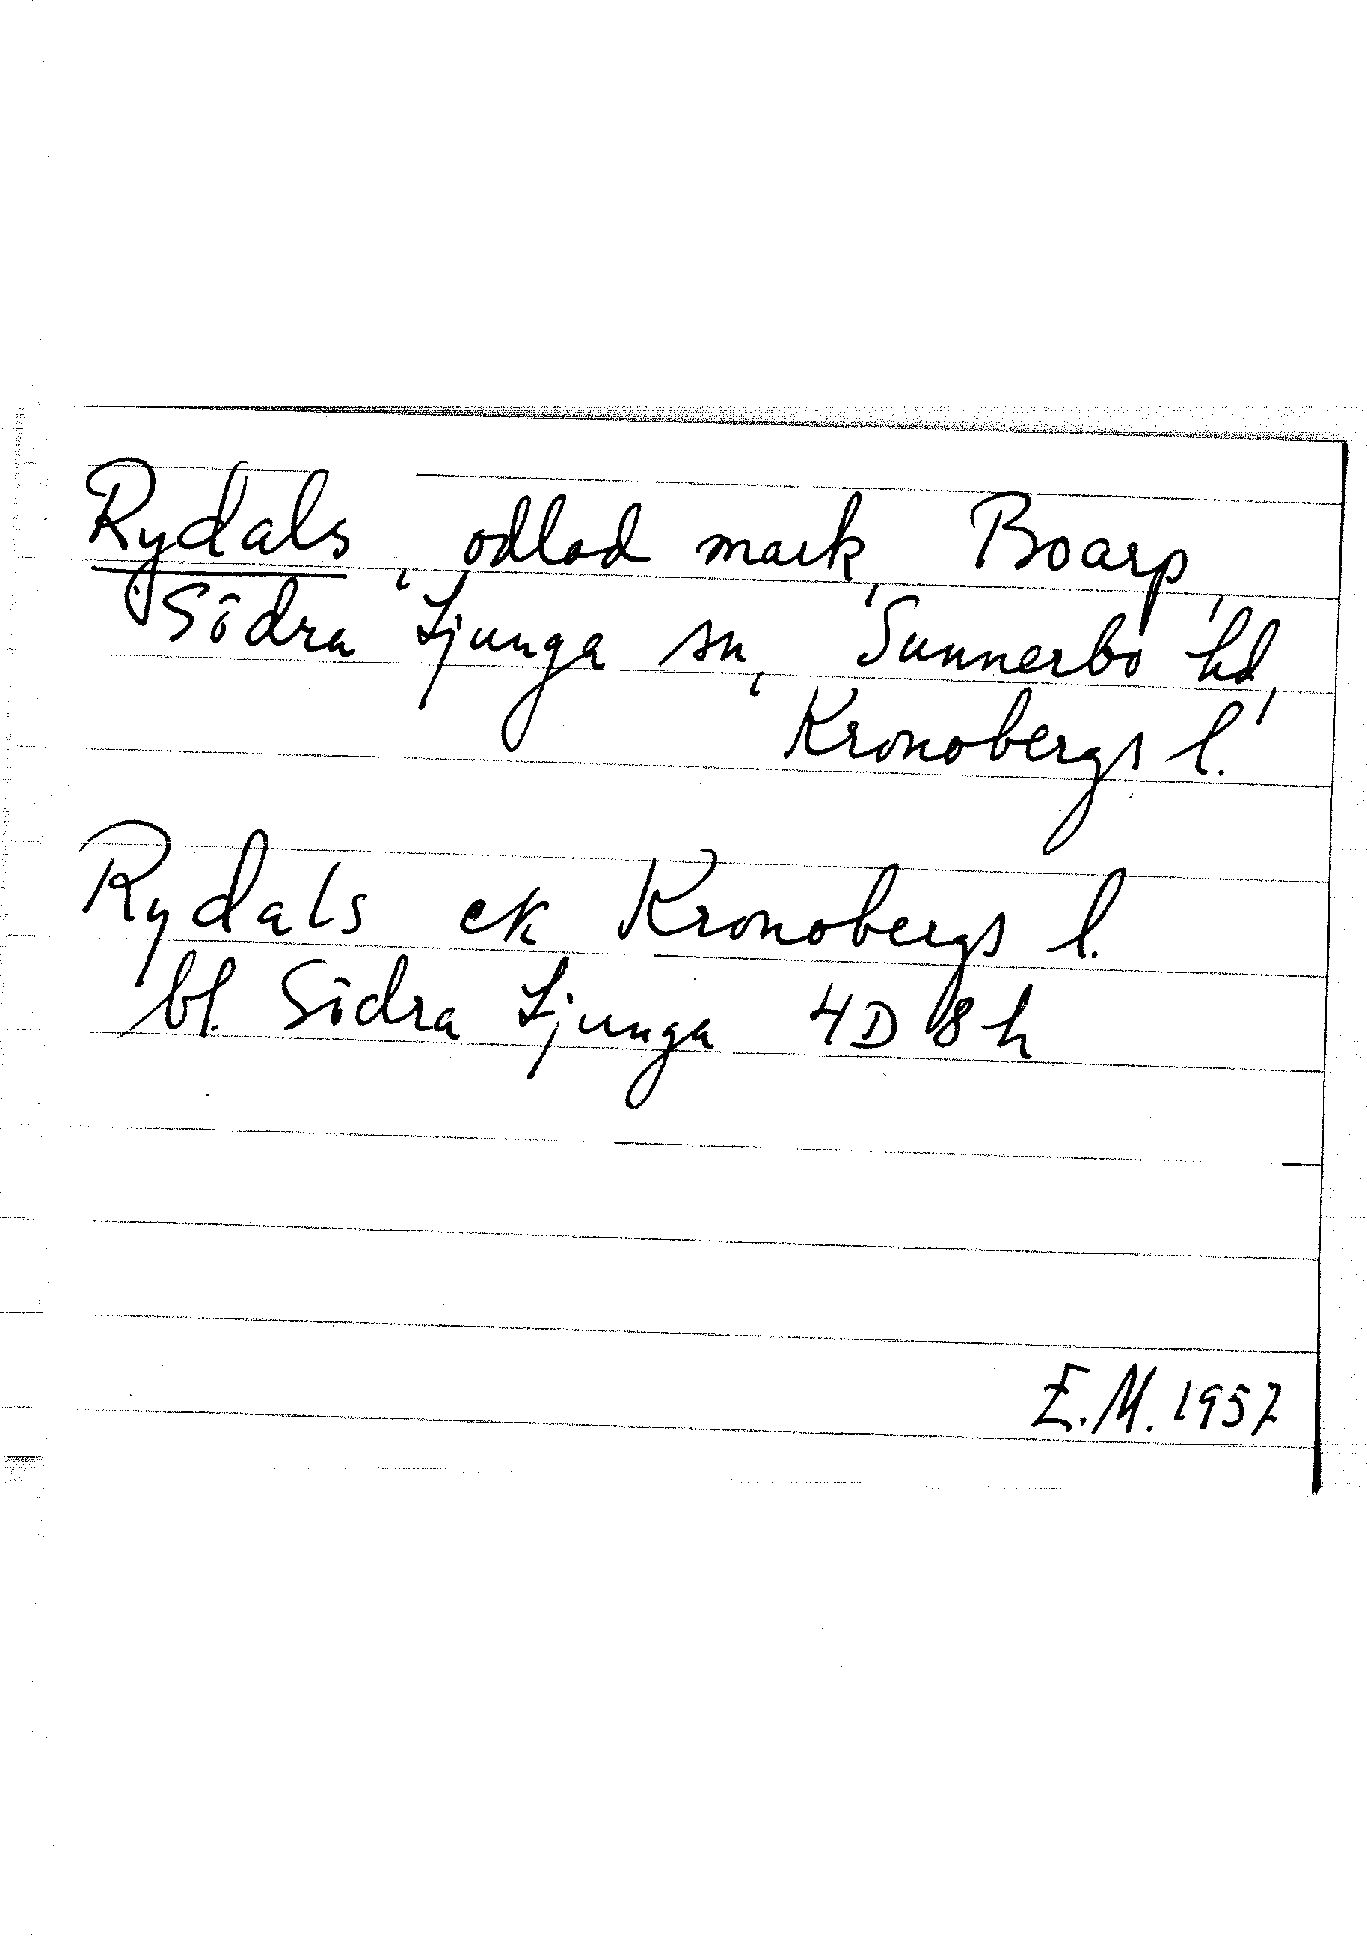 Rydals, odlad mark, Boarp,
Södra Ljunga sn, Sunnerbo hd,
Kronobergs l.
Rydals ek Kronobergs l.
bl. Södra Ljunga 4D 8h
E.M. 1957